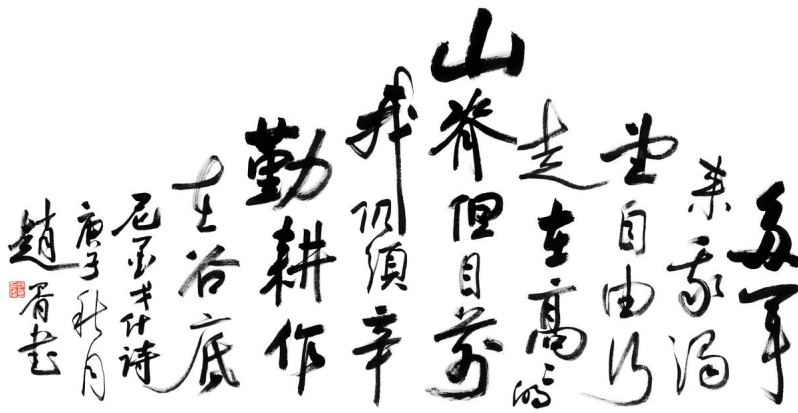 多年
来我渴
望自由行
走在高々的
山脊但目前
我仍須辛
勤耕作
在谷底
尼 诗
庚子秋月
趙 书